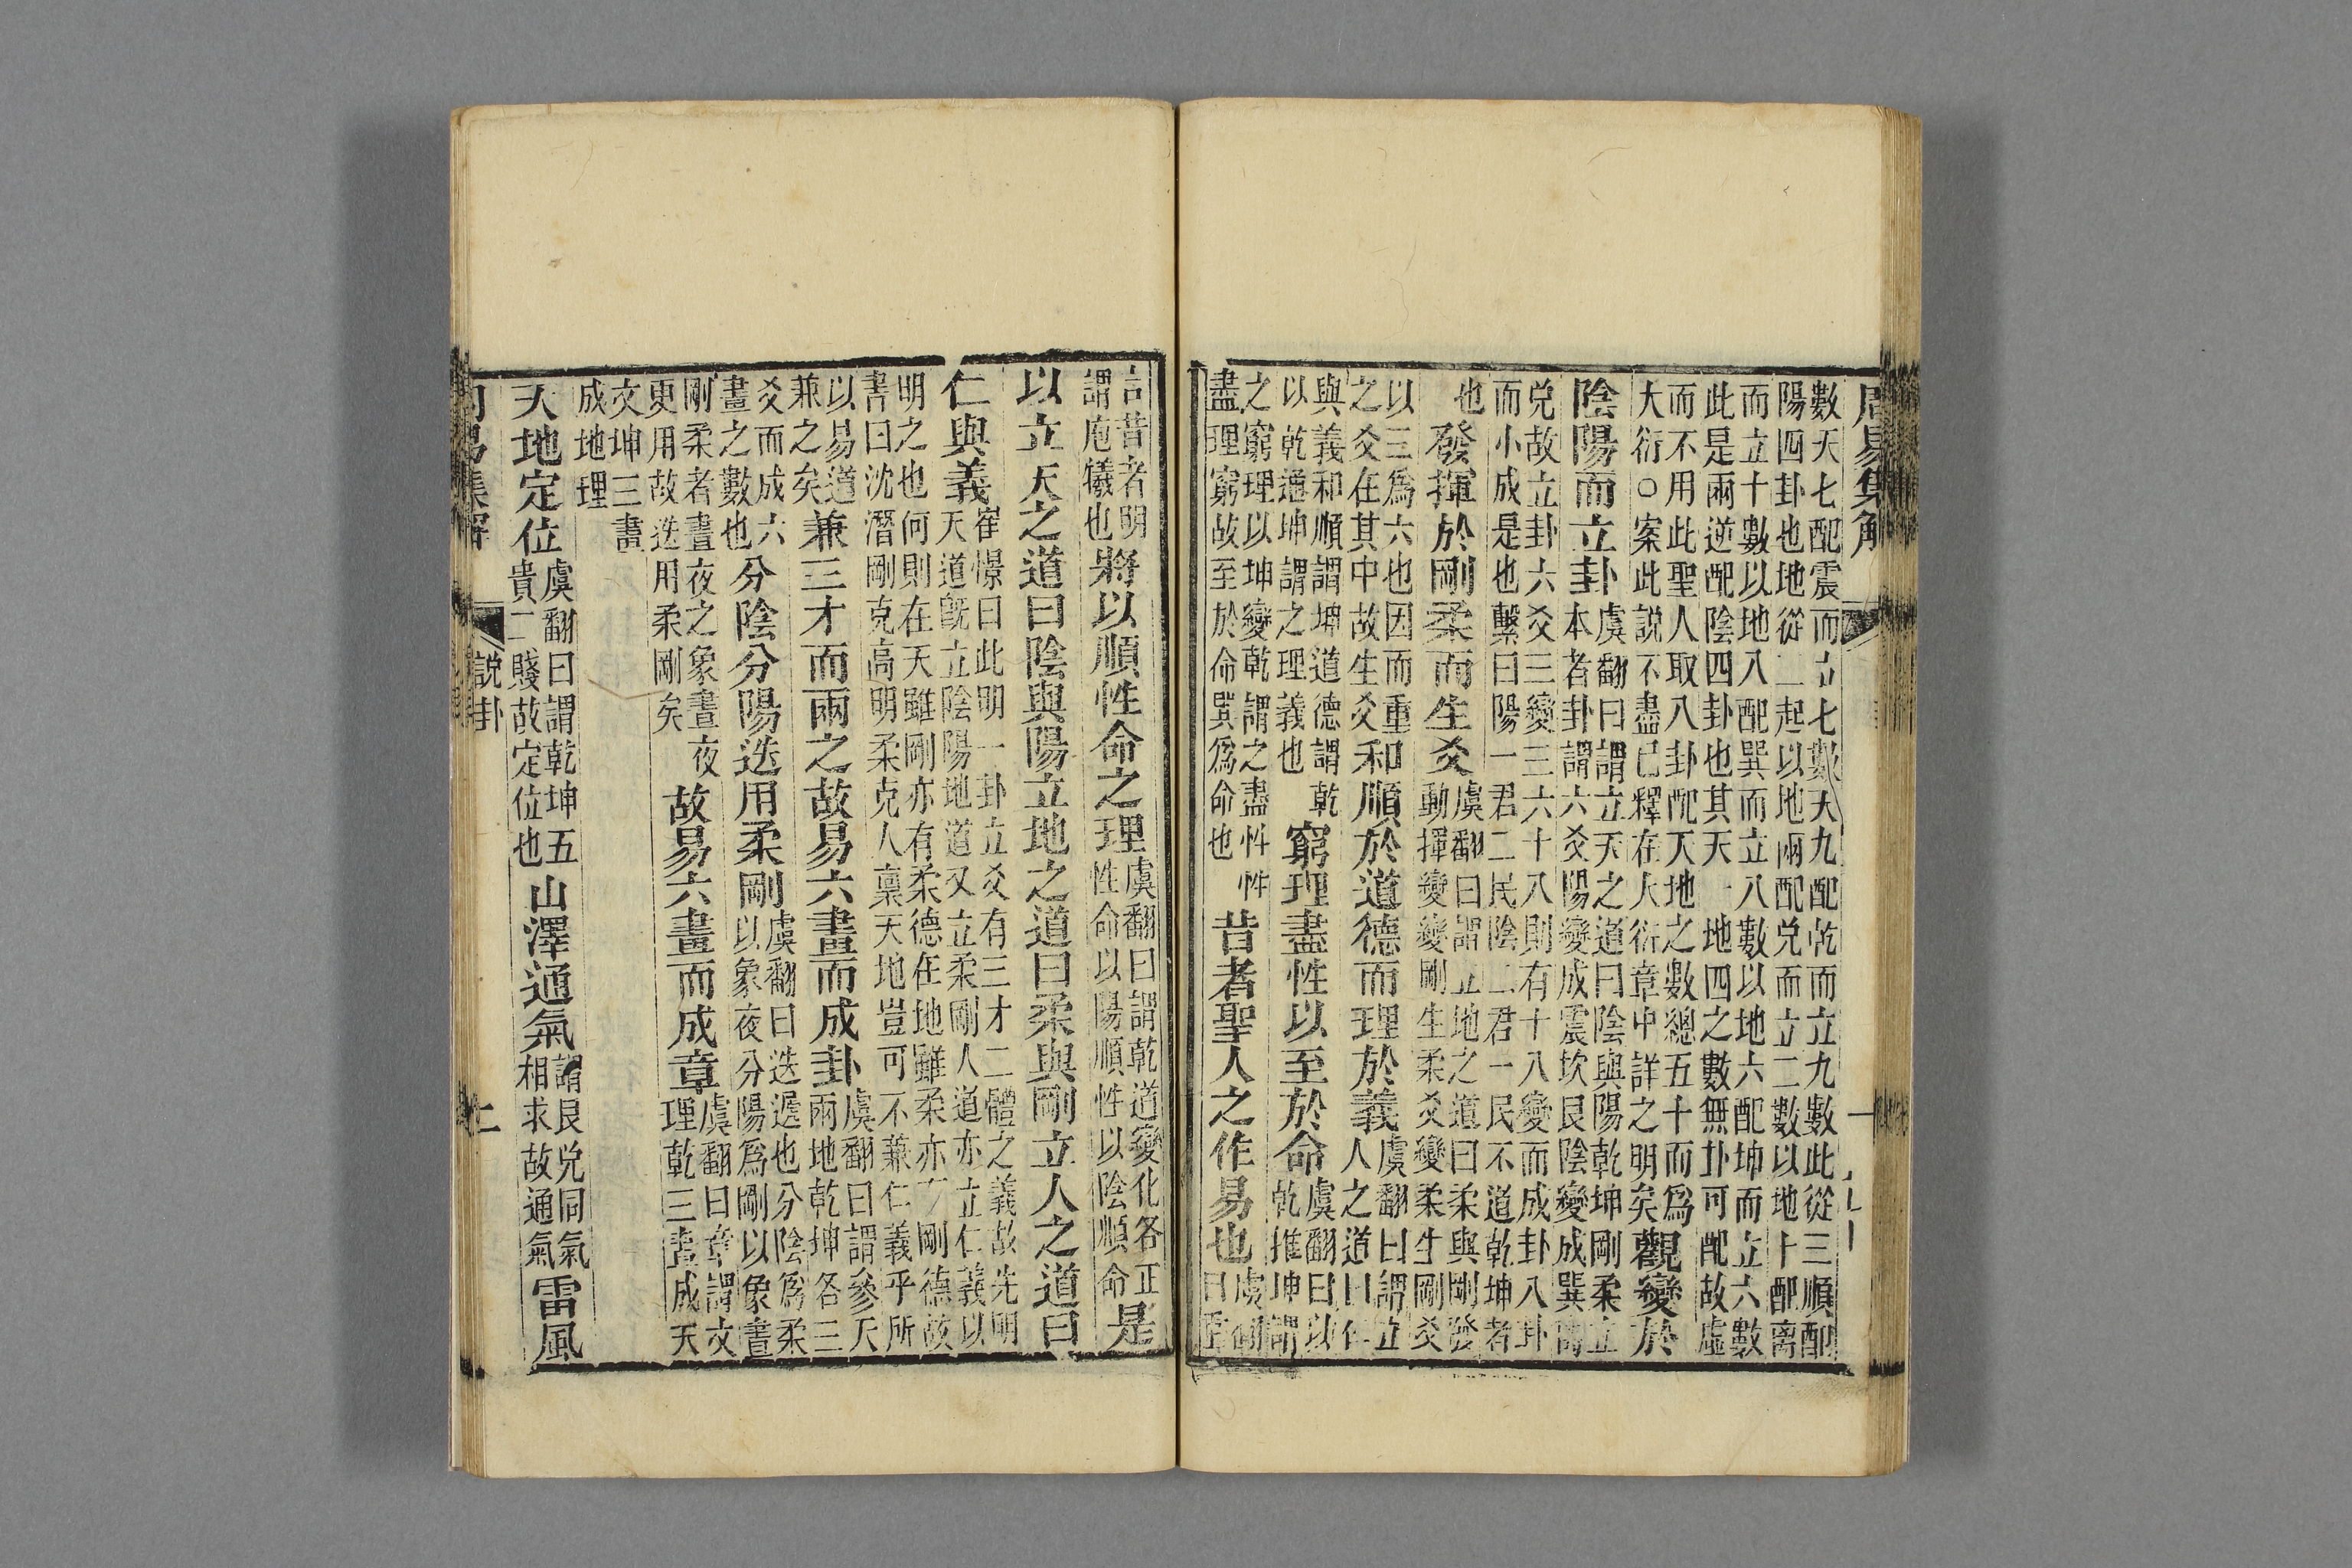 周易集解
數天七配震而立七數天九配乾而立九數此從三順配
陽四卦也地從二起以地兩配兌而立二數以地十配离
而立十數以地八配巽而立八數以地六配坤而立六數
此是兩逆配陰四卦也其天一地四之數無卦可配故虛
而不用此聖人取八卦配天地之數總五十而爲
大衍○案此説不盡已釋在大衍章中詳之明矣
觀變於
陰陽而立卦
虞翻曰謂立天之道曰陰與陽乾坤剛柔立
本者卦謂六爻陽變成震坎艮陰變成巽离
兌故立卦六爻三變三六十八則有十八變而成卦八卦
而小成是也繫曰陽一君二民陰二君一民不道乾坤者
也
發揮於剛柔而生爻
虞翻曰謂立地之道曰柔與剛發
動揮變變剛生柔爻變柔生剛爻
以三爲六也因而重
之爻在其中故生爻
和順於道德而理於義
虞翻曰謂立
人之道曰仁
與義和順謂坤道德謂乾
以乾通坤謂之理義也
窮理盡性以至於命
虞翻曰以
乾推坤謂
之窮理以坤變乾謂之盡性性
盡理窮故至於命巽爲命也
昔者聖人之作易也
虞翻
曰重
言昔者明
謂庖犧也
將以順性命之理
虞翻曰謂乾道變化各正
性命以陽順性以陰順命
是
以立天之道曰陰與陽立地之道曰柔與剛立人之道曰
仁與義
崔憬曰此明一卦立爻有三才二體之義故先明
天道旣立陰陽地道又立柔剛人道亦立仁義以
明之也何則在天雖剛亦有柔德在地雖柔亦有剛德故
書曰沈潛剛克高明柔克人稟天地豈可不兼仁義乎所
以易道
兼之矣
兼三才而兩之故易六畫而成卦
虞翻曰謂參天
兩地乾坤各三
爻而成六
畫之數也
分陰分陽迭用柔剛
虞翻曰迭遞也分陰爲柔
以象夜分陽爲剛以象晝
剛柔者晝夜之象晝夜
更用故迭用柔剛矣
故易六畫而成章
虞翻曰章謂文
理乾三畫成天
文坤三畫
成地理
天地定位
虞翻曰謂乾坤五
貴二賤故定位也
山澤通氣
謂艮兌同氣
相求故通氣
雷風
周易集解
説卦